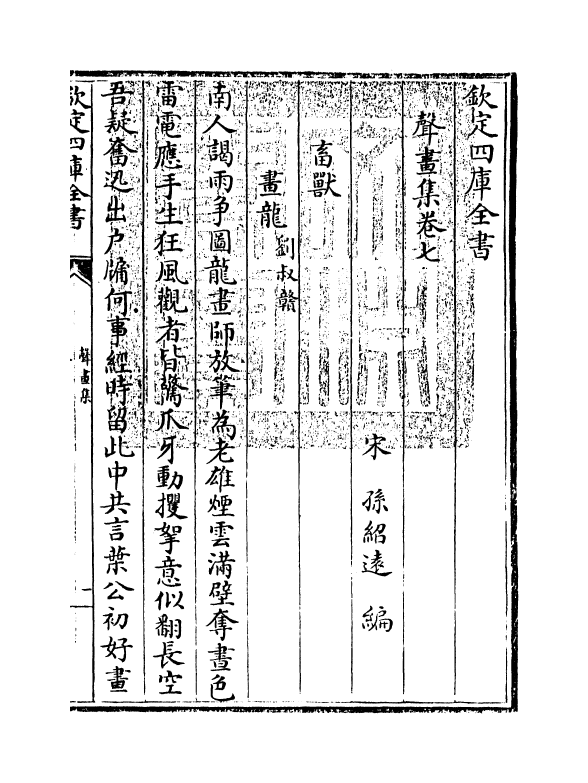 欽定四庫全書
聲畫集卷七
宋 孫紹遠 編
畜獸
畫龍 劉叔贛
南人謁雨爭圖龍畫師放筆為老雄煙雲滿壁奪晝色
雷電應手生狂風觀者皆驚爪牙動攫拏意似翻長空
吾疑奮迅出户牖何事經時留此中共言葉公初好畫
欽定四庫全書
聲畫集
一